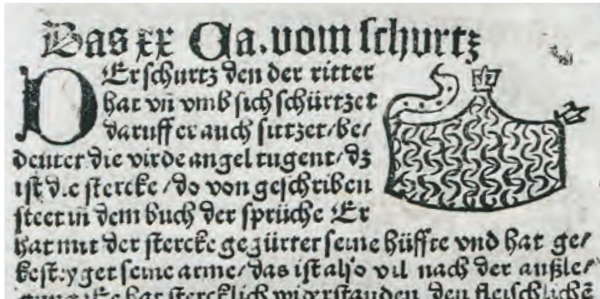 Das xx Ca. vom schurtz
DEr schurtz den der ritter
hat vñ vmb sich schürtzet
daruff er auch sitzet/be/
deutet die virde angel tugent/dz
ist d.e stercke/do von geschriben
steet in dem buch der sprüche Er
hat mit der stercke gegürtet seine hüffte vnd hat ge/
kest.yget seine arme/das ist also vil nach der außle/
hat stercklich widerstanden den fleischlichē